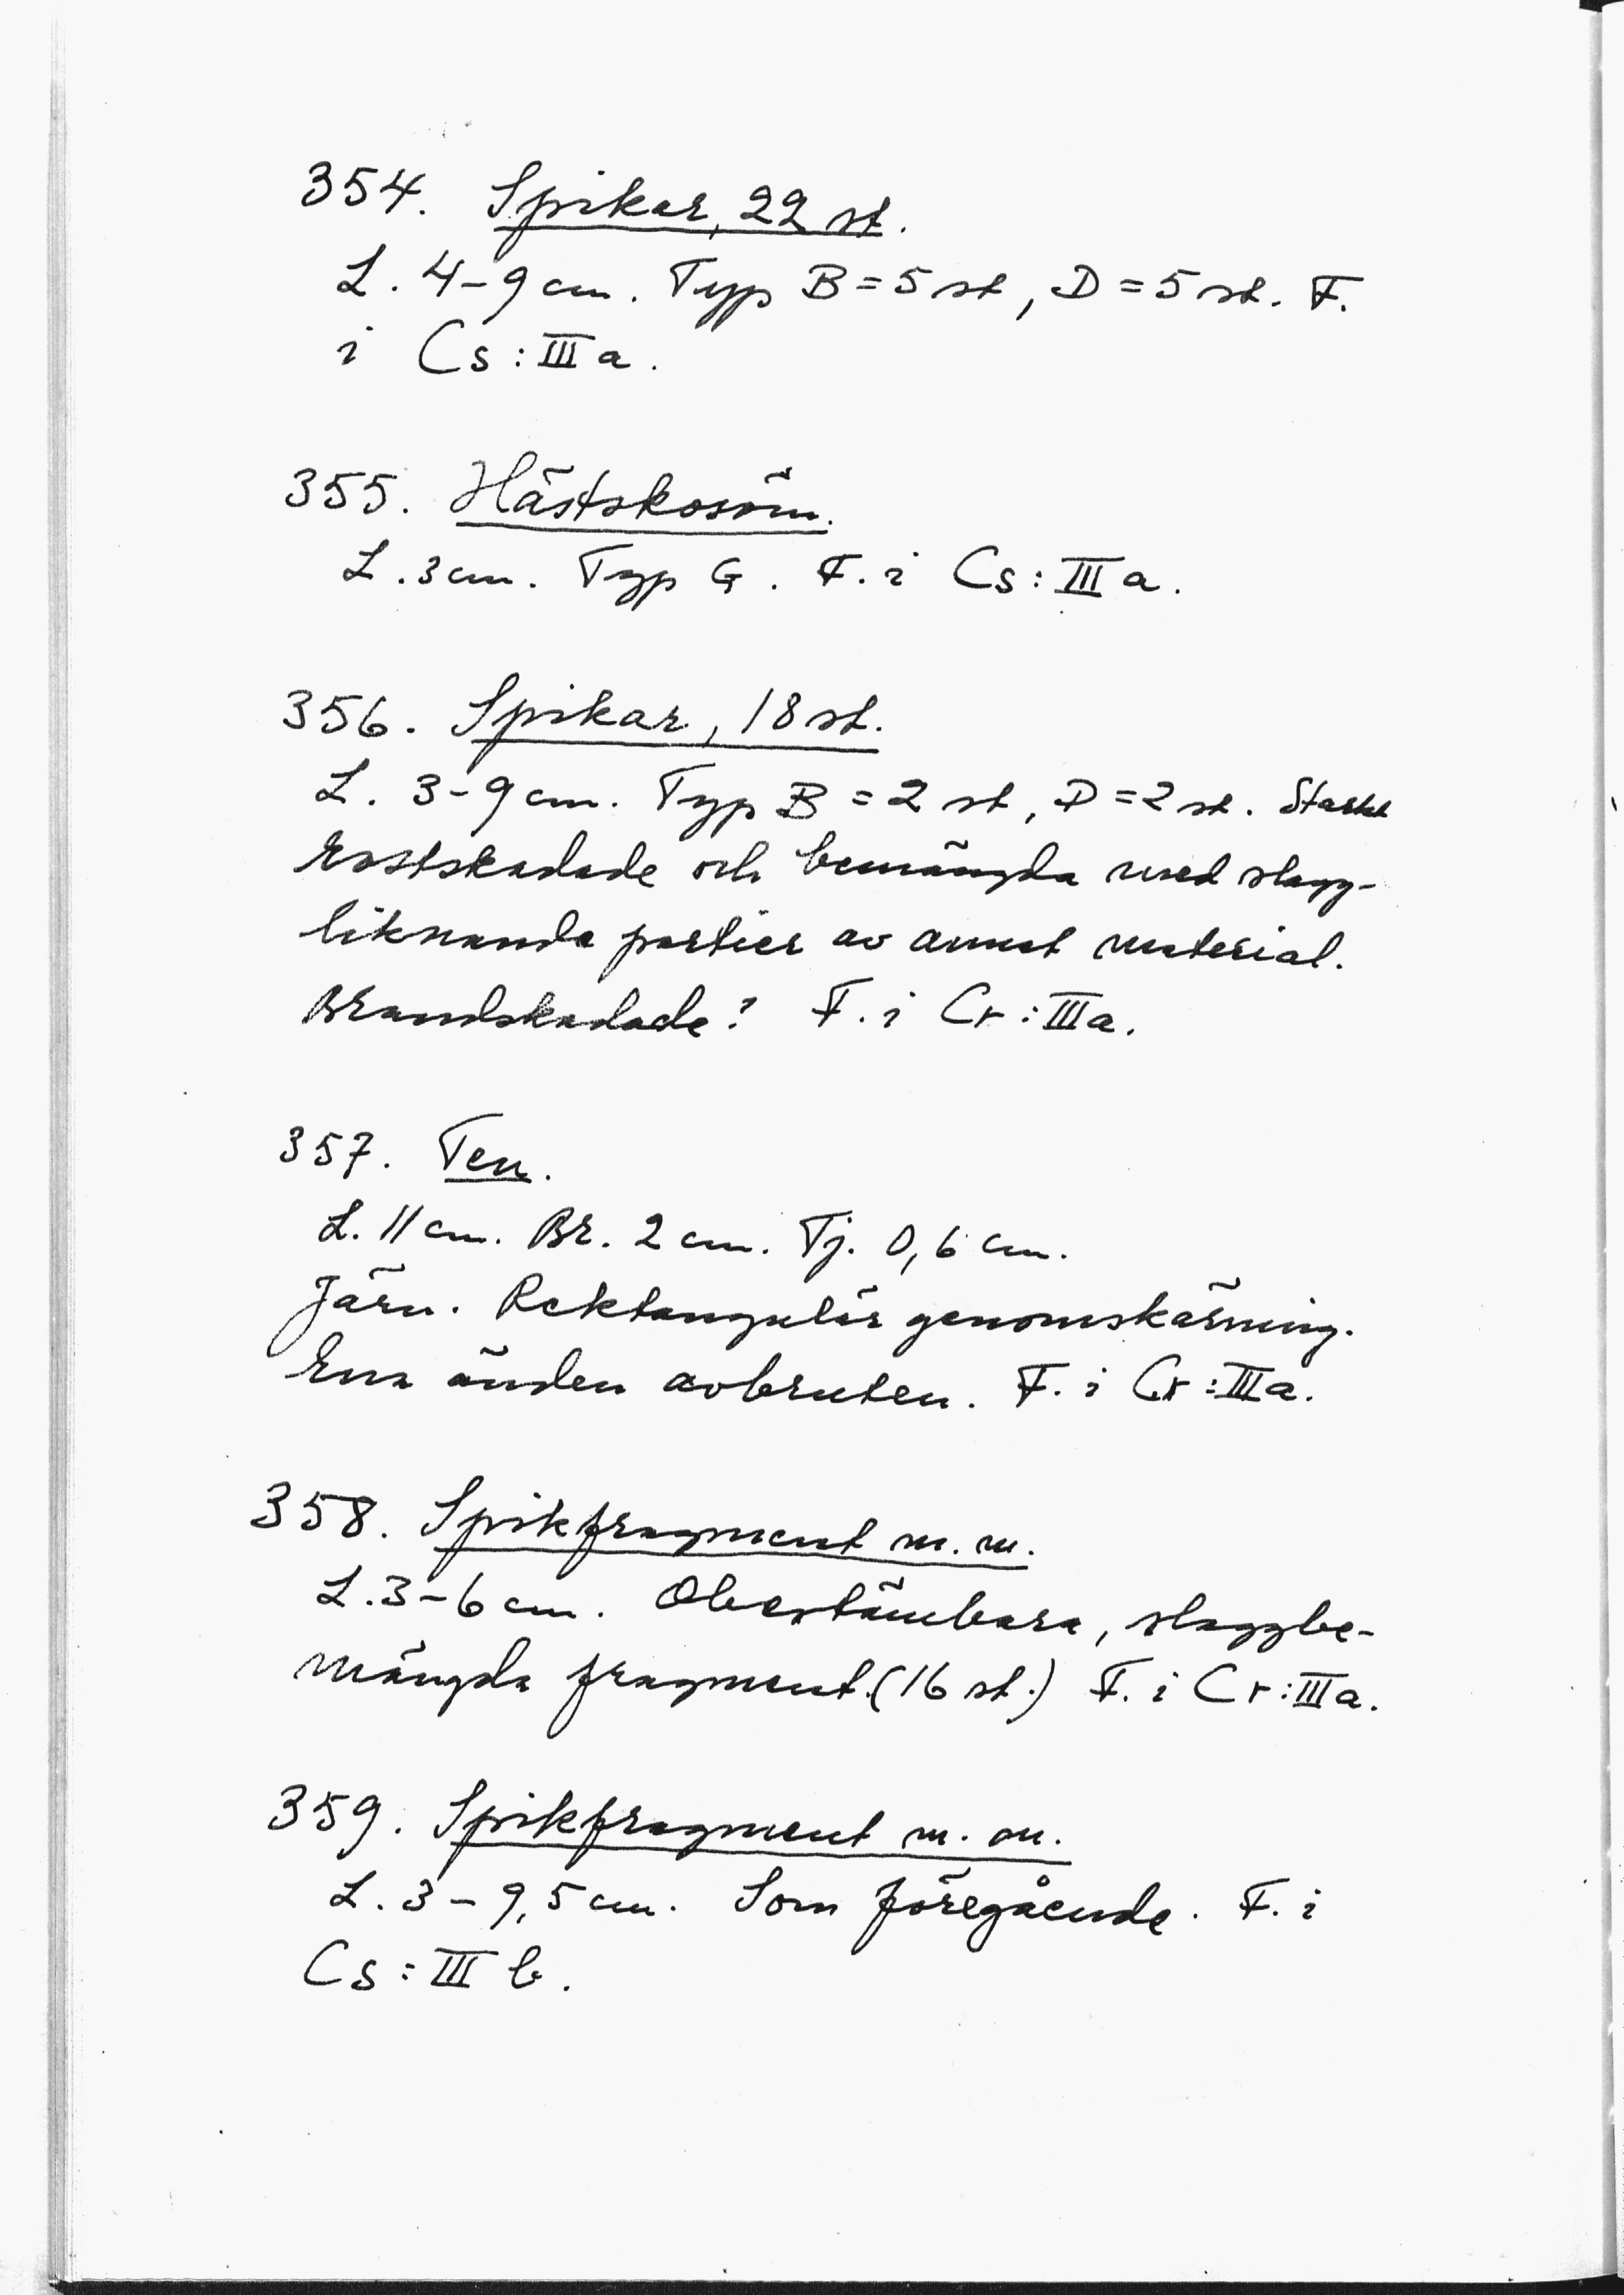 354. Spikar, 22 st.
L. 4-9 cm. Typ B = 5 st, D = 5 st. F.
i Cs : III a.
355. Hästskosöm.
L. 3 cm. Typ G. F. i Cs : III a.
356. Spikar, 18 st.
L. 3-9 cm. Typ B = 2 st, D = 2 st. Starkt
rostskadade och bemängda med slagg-
liknande partier av annat material.
Brandskadade? F. i Cr : III a.
357. Ten.
L. 11 cm. Br. 2 cm. Tj. 0,6 cm.
Järn. Rektangulär genomskärning.
Ena änden avbruten. F. i Cr : III a.
358. Spikfragment m. m.
L. 3-6 cm. Obestämbara, slaggbe-
mängda fragment. (16 st.) F. i Cr : III a.
359. Spikfragment m. m.
L. 3 - 9,5 cm. Som föregående. F. i
Cs : III b.